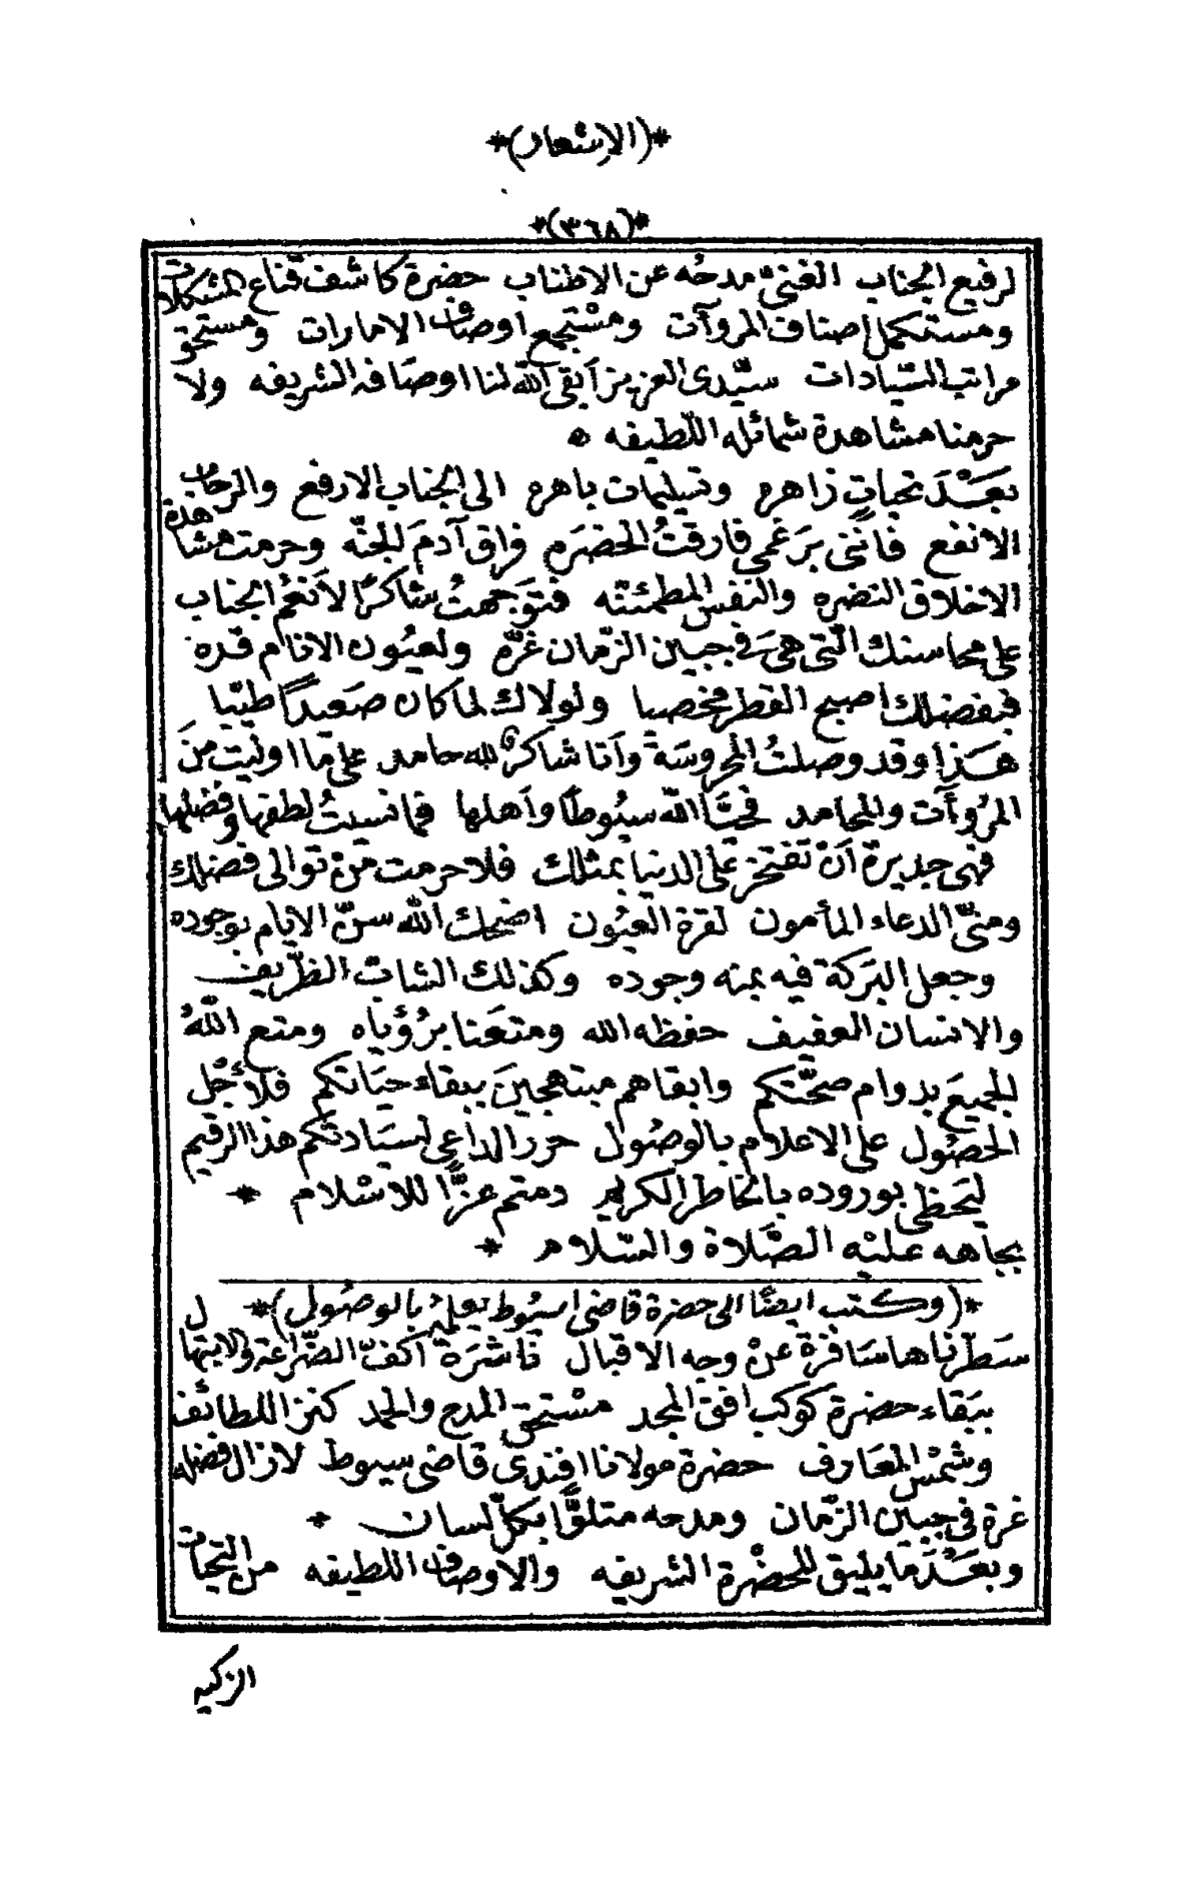 *(الاشعار)*
*(٣٦٨)*
لرفيع الجناب الغنىّ مدحُه عن الاطناب حضرة كاشف قناع المشكلات
ومستكمل اصناف المروآت ومسْتجمع اوصاف الامارات ومستحق
مراتب السّيادات سيّدى العزيز اَبقى اللّه لنا اوصَافه الشريفه ولا
حرمنا مشاهدة شمائله اللّطيفه ه
بعَدْ تحياتٍ زاهره وتسليمات باهره الى الجناب الارفع والرحاب
الانفع فاننى برَغمى فارقتُ الحضرَه فراق آدمَ للجنّه وحرمت مشاهدة
الاخلاق النضره والنفس المطمئنّه فتوَجهتُ شاكرًا لاَنعُم الجناب
على محاسنك الّتى هىَ فى جبين الزّمان غرّه ولعيُون الانام قره
فبفضلك اصبح القطر مخصبا ولولاك لما كان صَعيداً طيّبا
هَذا وقد وصلتُ المحروسَة وَانا شاكرٌ لله حامد على مَا اوليت منَ
المرُوأت والمحامد فحيَّا اللّه سيُوطًا واَهلها فما نسيتُ لطفها وفضلها
فهى جديرة اَنْ تفتخر على الدنيا بمثلك فلا حرمت منْ توالى فضلك
ومنّى الدعاء المأمون لقرة العيُون اضحك اللّه سنّ الايام بوجوده
وجعل البَركة فيه بمنه وجوده وكذلك الشاب الظّريف
والانسان العفيف حفظه الله ومتعَنا برُؤياه ومتع اللّهُ
الجميعَ بدوام صحّتكم وابقاهم مبتهجينَ ببقاء حيَاتكم فلأَجْل
الحصُول على الاعلام بالوصُول حرر الداعى لسيَادتكم هذا الرقيم
ليَحظى بوروده بالخاطر الكريم دمتم عزًّا للاسْلام *
بجاهه عليْه الصَّلاة والسّلام *
*(وكتب ايضًا الى حضرة قاضى اسيُوط يعلمهُ بالوصُول)*
سَطرناها سَافرة عنْ وجه الاقبال ناشرَة اكفّ الضّراعة والابتهال
ببَقاء حضرة كوكب افق المجد مسْتحق المدح والحمد كنز اللطائف
وشمْس المعَارف حضرة مولانا افندى قاضى سيوط لازال فضله
غرة فى جبين الزّمان ومدحه متلوًّا بكلّ لسان *
وبعَدْ مَا يليق للحضْرة الشريفه والاوصاف اللطيفه من التحيات
الزكيه